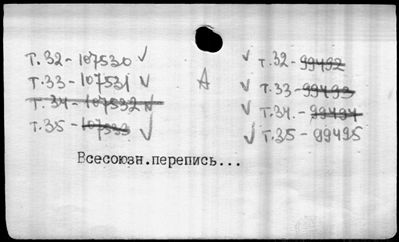 т.32-107530 ✓
т.33-107531 ✓
т.34-107532 ✓
т.35-107533 ✓
А
✓ т.32-99492
✓ т.33-99493
✓ т.34.-99494
✓ т.35-99495
Всесоюзн.перепись...